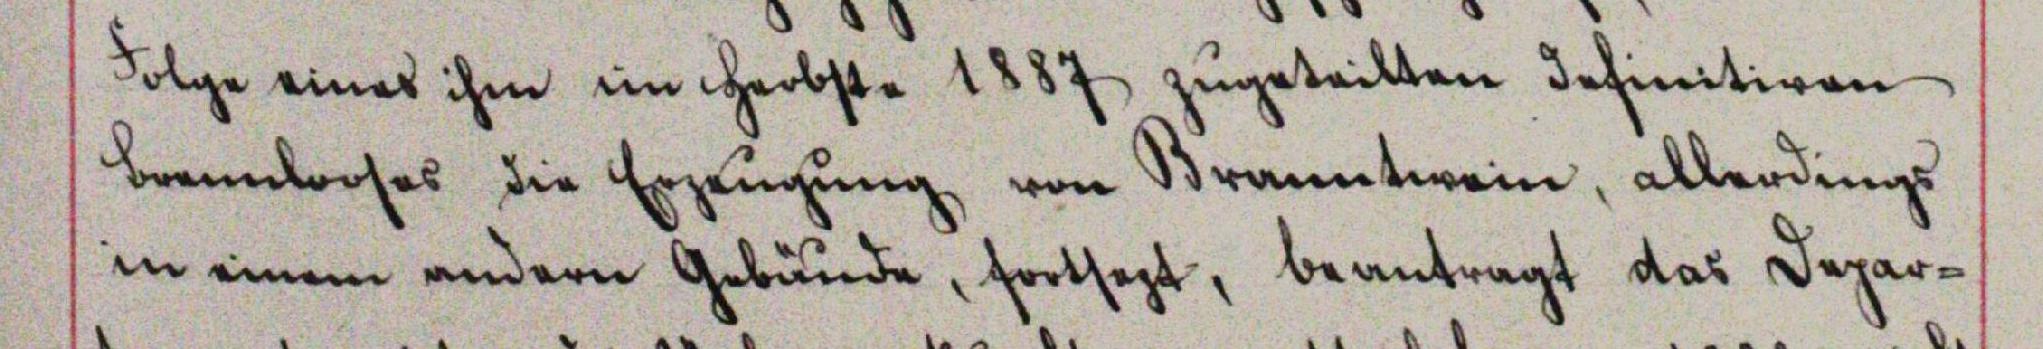 Folge eines ihm im Herbste 1887 zugeteilten definitiven
Brennlooses die Erzeugung von Branntwein, allerdings
in einem andern Gebäude, fortsezt, beantragt das Depar-